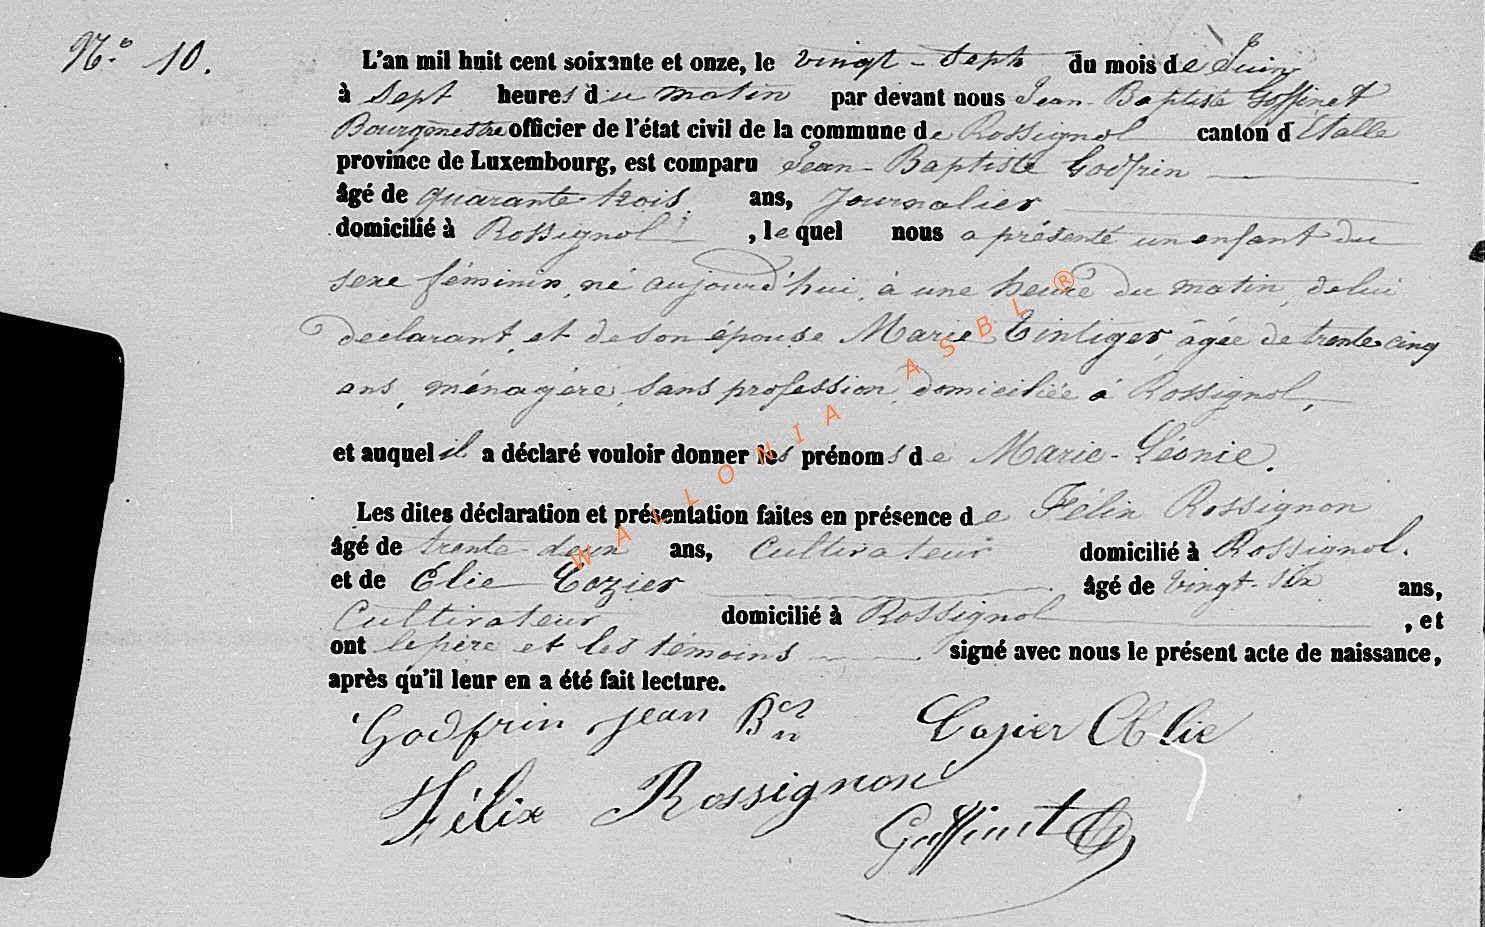 N.° 10.
L'an mil huit cent soixante et onze, le vingt-sept du mois de Juin
à sept heures du matin par devant nous Jean-Baptiste Goffinet
Bourgmestre officier de l'état civil de la commune de Rossignol canton d'Etalle
province de Luxembourg, est comparu Jean-Baptiste Godfrin
âgé de quarante-trois ans, journalier
domicilié à Rossignol, lequel nous a présenté un enfant du
sexe féminin, né aujourd'hui, à une heure du matin, de lui
declarant, et de son épouse Marie Tintiger, âgée de trente cinq
ans, ménagére, sans profession, domiciliée à Rossignol,
et auquel il a déclaré vouloir donner les prénoms de Marie-Léonie.
Les dites déclaration et présentation faites en présence de Félix Rossignon
âgé de trente-deux ans, Cultivateur domicilié à Rossignol.
et de Elie Lozier âgé de vingt-six ans,
Cultivateur domicilié à Rossignol, et
ont le père et les témoins signé avec nous le présent acte de naissance,
après qu'il leur en a été fait lecture.
Godfrin jean B Lozier Elie
Félix Rossignon
Goffinet
WALLONIA ASBL ®